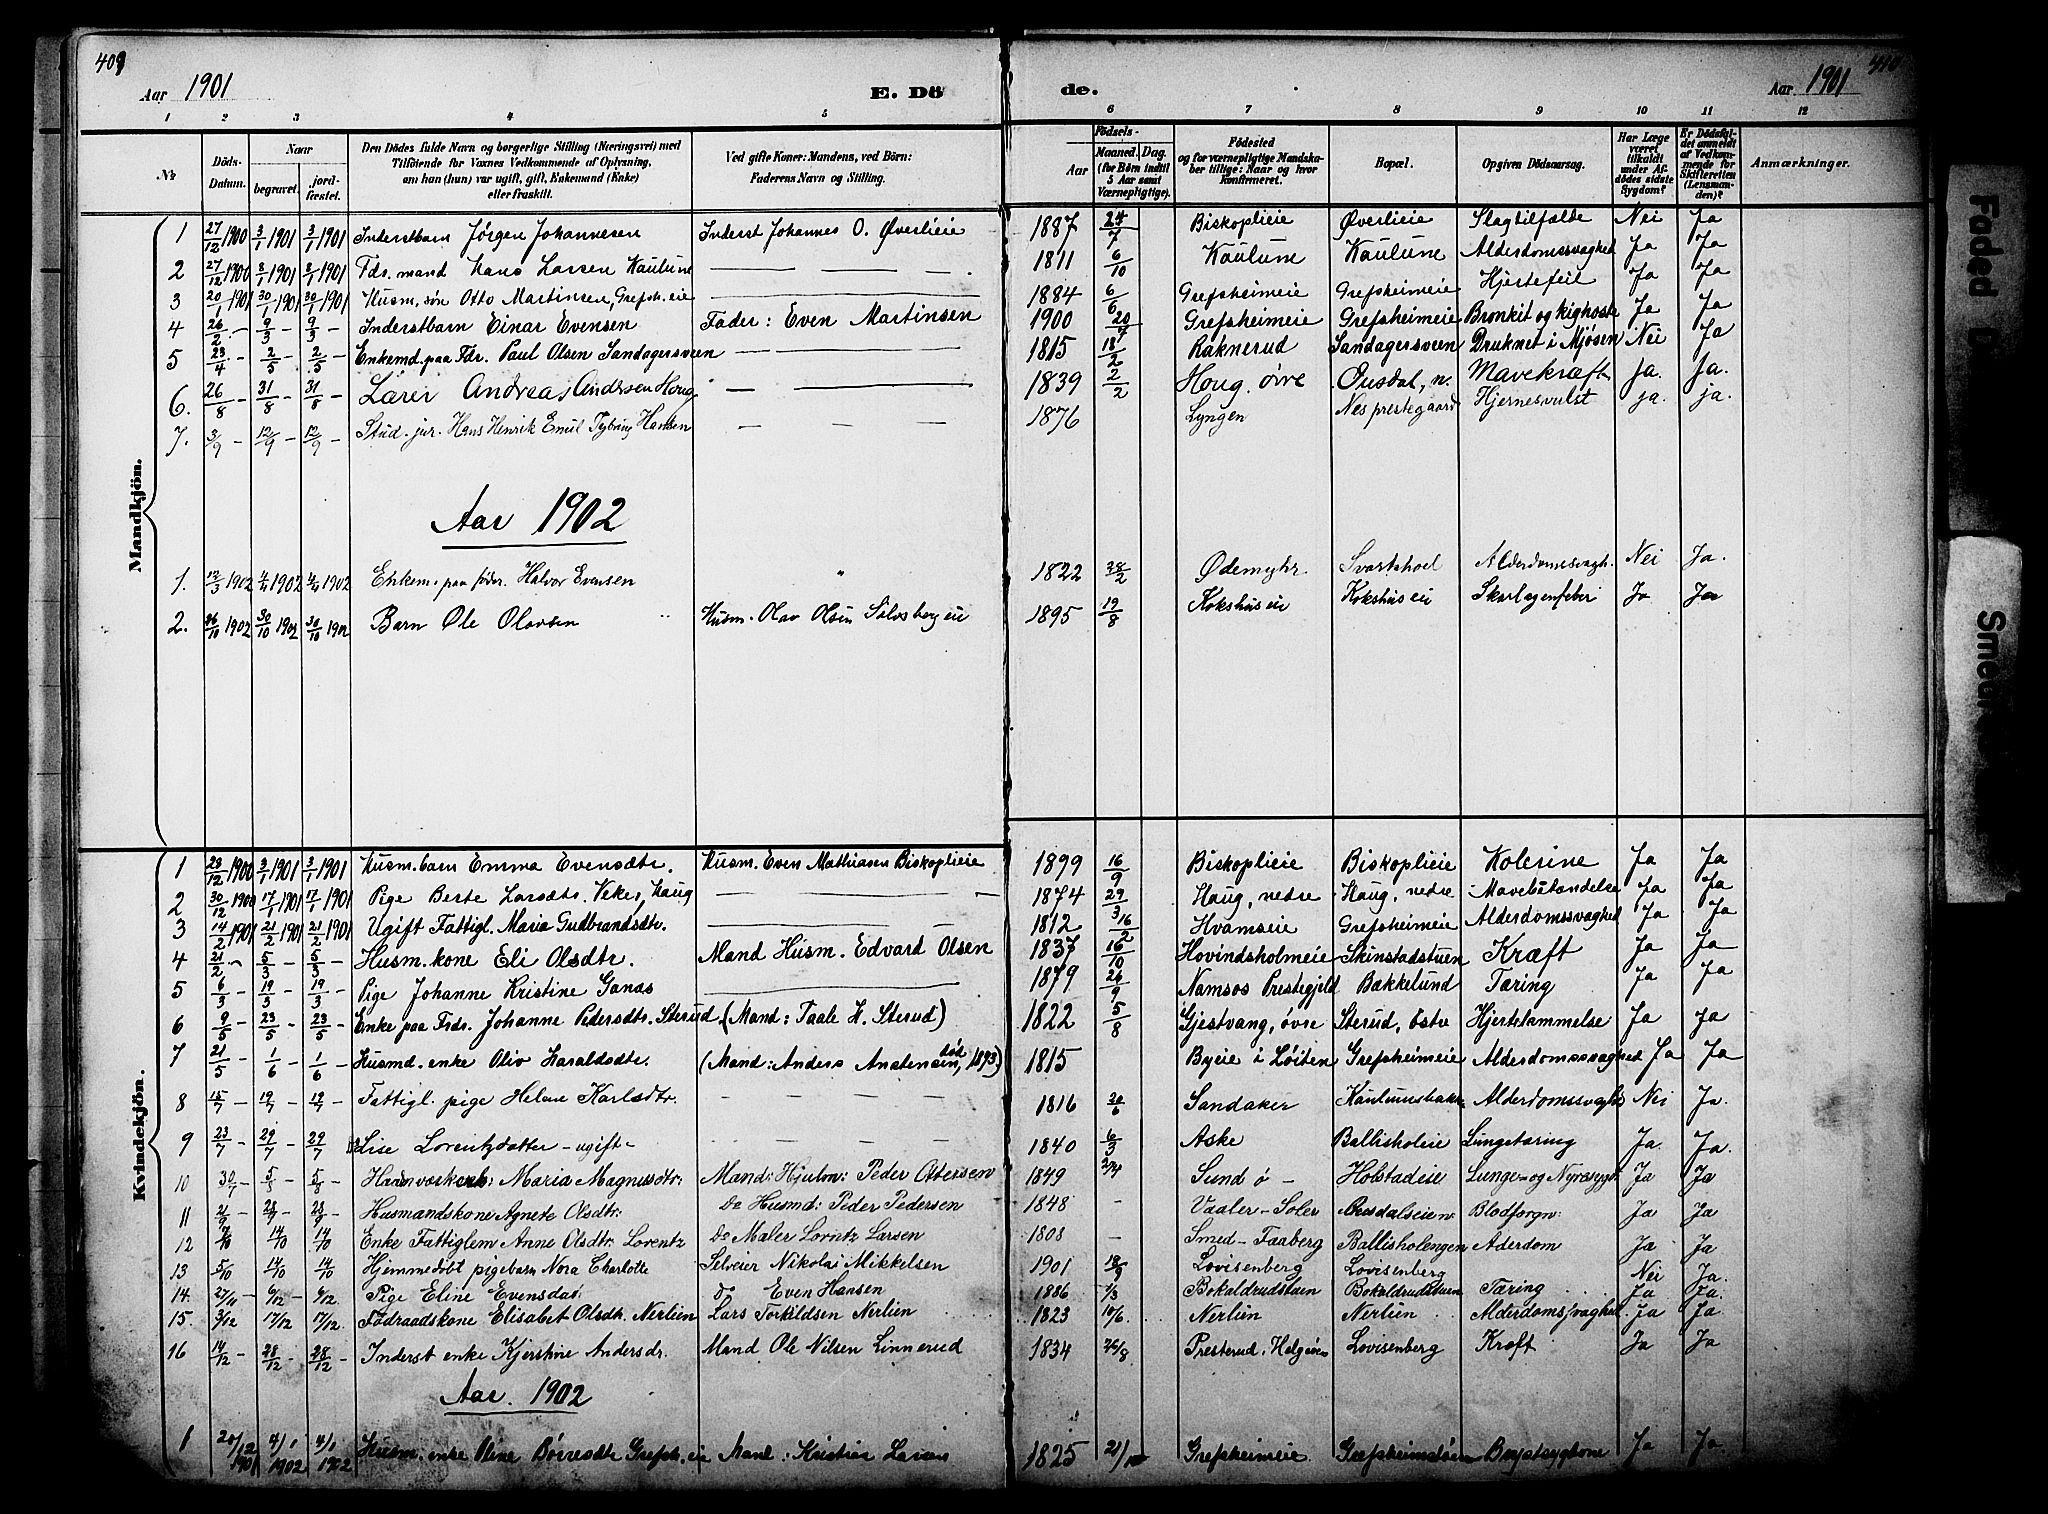 409
410
Aar 1901
E. Dö
de.
Aar 1901
1 2 3 4 5 6 7 8 9 10 11 12
№
Döds-Datum.
Naar
begravet.
jordfæstet.
Den Dödes fulde Navn og borgerlige Stilling (Næringsvei) med Tilföiende for Voxnes Vedkommende af Oplysning, om han (hun) var ugift, gift, Enkemand (Enke) eller fraskilt.
Ved gifte Koner: Mandens, ved Börn: Faderens Navn og Stilling.
Födsels-
Aar
Maaned. Dag.
(for Börn indtil 5 Aar samt Værnepligtige).
Födested og for værnepligtige Mandskaber tillige: Naar og hvor konfirmeret.
Bopæl.
Opgiven Dödsaarsag.
Har Læge været tilkaldt under Afdödes sidste Sygdom?
Er Dödsfaldet anmeldt af Vedkommende for Skifteretten (Lensmanden)?
Anmærkninger.
Mandkjön.
1 27/12 1900 3/1 1901 3/1 1901 Inderstbarn Jörgen Johannesen Inderst Johannes O. Øverlieie 1887 24/7 Biskoplieie Øverlieie Slagtilfælde Nei Ja
2 27/12 1900 8/1 1901 8/1 1901 Fdr. mand Hans Larsen Kaulum — — — — 1811 6/10 Kaulum Kaulum Alderdomssvaghed Ja Ja
3 20/1 1901 30/1 1901 30/1 1901 Husm. søn Otto Martinsen, Grefsh. eie — 1884 6/6 Grefsheimeie Grefsheimeie Hjertefeil Ja Ja
4 26/2 — 9/3 — 9/3 Inderstbarn Einar Evensen Fader: Even Martinsen 1900 20/7 Grefsheimeie Grefsheimeie Bronkit og kighoste Ja Ja
5 23/4 — 2/5 — 2/5 Enkemd. paa Fdr. Paul Olsen Sandagersveen — — 1815 18/2 Raknerud Sandagersveen Druknet i Mjøsen Nei Ja
6. 26/8 — 31/8 31/8 Lærer Andreas Andersen Houg — 1839 2/2 Houg, øvre Ousdal, n. Mavekræft Ja. Ja.
7. 3/9 — 12/9 — 12/9 — Stud. jur. Hans Henrik Emil Tybring Hansen — — — — 1876 Lyngen Nes prestegaard Hjernesvulst ja. ja.
Aar 1902
1. 12/3 1902 1902 1902 Enkem. paa föder. Halvor Evensen " 1822 28/2 Ødemyhr Svartshoel Alderdomssvagh. Nei Ja.
2. 26/10 1902 30/10 1902 30/10 1902 Barn Ole Olavsen Husm. Olav Olsen Silvsberg eie 1895 19/8 Kokshus eie Kokshus eie Skarlagenfeber Ja Ja
Kvindekjön.
1 23/12 1900 3/1 1901 3/1 1901 Husm. barn Emma Evensdtr. Husm. Even Mathiasen Biskoplieie 1899 16/9 Biskoplieie Biskoplieie Kolerine Ja Ja
2 30/12 1900 17/1 1901 17/1 1901 Pige Berte Larsdtr. Veker, Haug — 1874 29/3 Haug, nedre Haug, nedre Mavebetændelse Ja Ja
3 14/2 1901 21/2 1901 21/2 1901 Ugift Fattigl. Maria Gudbrandsdtr. — 1812 16/2 Hvamseie Grefsheimeie Alderdomssvaghed Ja Ja
4 21/2 — 5/3 — 5/3 Husm. kone Eli Olsdtr. Mand Husm. Edvard Olsen 1837 16/10 Hovindsholmeie Skinstadstuen Kræft Ja Ja
5 6/3 — 19/3 — 19/3 — Pige Johanne Kristine Ganas — 1879 26/9 Namsos Prestegjeld Bakkelund Tæring Ja Ja
6 9/5 — 23/5 — 23/5 — Enke paa Frdr. Johanne Pedersdtr. Sterud. (Mand: Taale H. Sterud) 1822 5/8 Gjestvang, øvre Sterud, Østre Hjertelammelse Ja Ja
7 21/5 — 1/6 — 1/6 — Husmd. enke Oliv Haraldsdtr. (Mand: Anders Anstensen, död 1893) 1815 Byeie i Løiten Grefsheimeie Alderdomssvaghed Ja Ja
8 15/7 — 19/7 — 19/7 — Fattigl. pige Helene Karlsdtr. — — — — 1816 20/6 Sandaker Kaulumsbakk. Alderdomssvaghd Nei Ja.
9 23/7 — 29/7 — 29/7 Lise Lorentzdatter — ugift — — — — — 1840 6/3 Aske Ballisholeie Lungetæring Ja. Ja.
10 30/7 — 5/8 — 5/8 — Haandværkerk: Maria Magnusdtr: Mand: Hjulm: Peder Ottersen 1849 Sund ø — Holstadeie Lunge- og Nyresygd. Ja Ja
11 21/9 — 28/9 — 28/9 — Husmandskone Agnete Olsdtr: Do Husmd: Peder Pedersen 1848 — Vaaler — Solør Ousdalseien Blodforgn: Ja Ja
12 14/10 14/10 Enke Fattiglem Anne Olsdtr. Lorentz Do Maler Lorntz Larsen 1808 — Smed — Faaberg Ballisholengen Aderdom Ja Ja
13 5/10 14/10 14/10 Hjemmedöbt pigebarn Nora Charlotte Selveier Nikolai Mikkelsen 1901 18/9 Lovisenberg Lovisenberg Nei Ja.
14. 27/11 — 6/12 — 6/12. Pige Eline Evensdatr. do Even Hansen 1886 7/3 Bokaldrudstuen Bokaldrudstuen Tæring Ja Ja.
15. 9/12 17/12 — 17/12 — Födraadskone Elisabet Olsdtr. Nerlien Lars Torkildsen Nerlien 1823 10/6 Nerlien Nerlien Alderdomssvaghed Ja Ja
16 14/12 — 28/12 — 28/12 — Inderst enke Kjerstine Andersdr. Mand Ole Nilsen Linnerud 1834 26/8 Presterud, Helgøen Lovisenberg Kræft Ja Ja
Aar. 1902
1 20/12 1901 4/1 1902 4/1 1902 Husm. enke Oline Børresdtr Grefsh. eie Mand: Kristian Larsen 1825 21/10 Grefsheimeie Grefsheimstøen Brystsygdom Ja Ja.
Faded